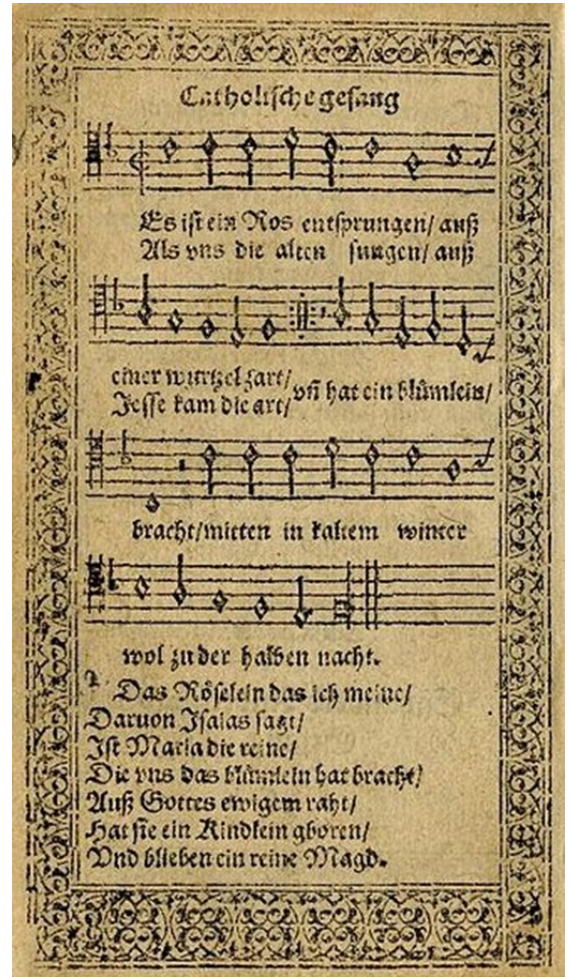 Catholische gesang
Es ist ein Ros entsprungen/ auß
Als vns die alten sungen/ auß
einer wurtzel zart/
Jesse kam die art/ vñ hat ein blůmlein/
bracht/mitten in kaltem winter
wol zu der halben nacht.
2 Das Röselein das ich meine/
Daruon Isaias sagt/
Ist Maria die reine/
Die vns das blůmlein hat bracht/
Auß Gottes ewigem raht/
Hat sie ein Kindlein gboren/
Vnd blieben ein reine Magd.